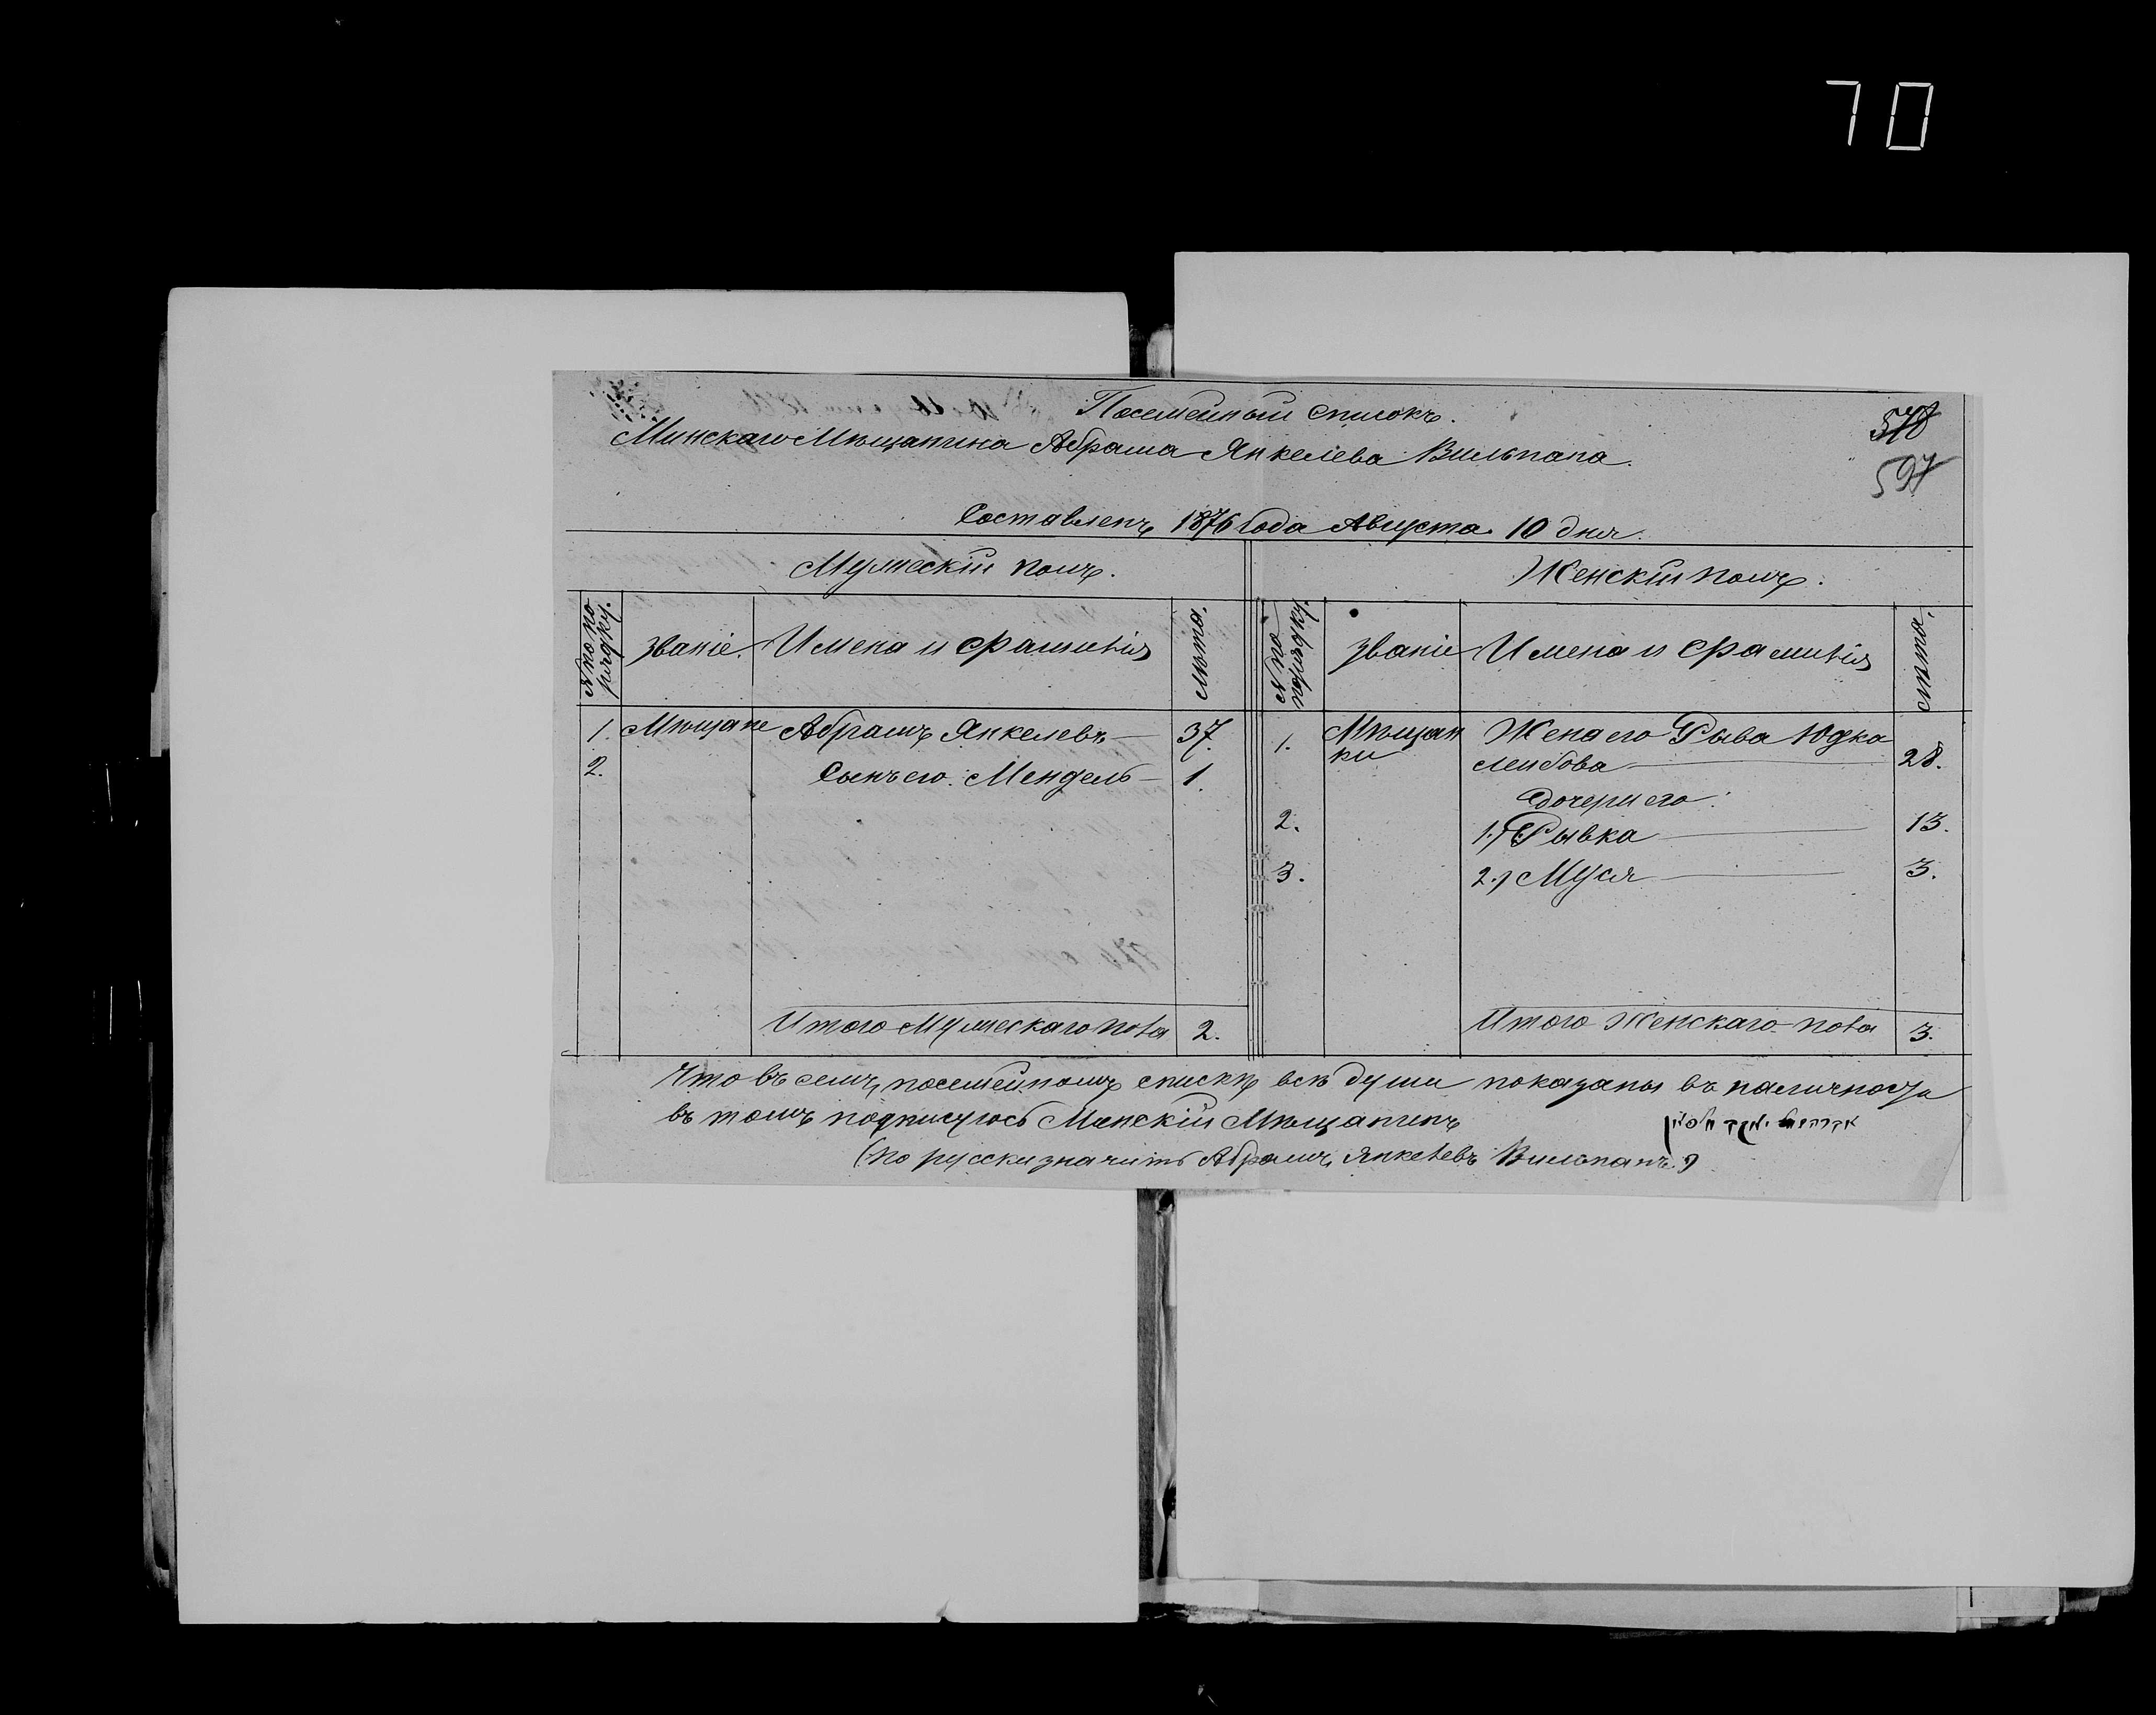 70
Посемейный списокъ.
Минскаго Мѣщанина Абрама Янкелева Вильнана.
597
Составленъ 1876 года Августа 10 дня.
Мужескій полъ.
Женскій полъ.
№ по порядку.
званіе.
Имена и фамилія
Лѣта.
№ по порядку.
званіе
Имена и фамилія
Лѣта.
1. Мѣщане Абрамъ Янкелевъ 37.
2. Сынъ его Мендель 1.
1. Мѣщан
ки
Жена его Рыва Юдка
Лейбова 28.
Дочери его:
2. 1.) Рывка 13.
3. 2.) Муся 3.
Итого Мужескаго пола 2.
Итого Женскаго пола 3.
Что въ семъ посемейномъ спискѣ всѣ души показаны въ наличности
въ томъ подписуюсь Минскій Мѣщанинъ
(по русски значитъ Абрамъ Янкелевъ Вильнанъ)